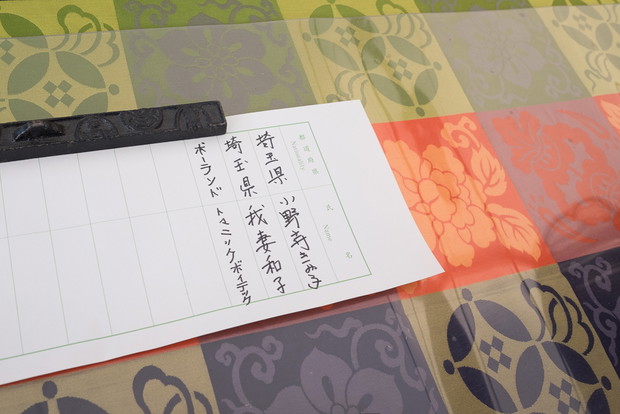 都道府県 Nationality
氏 名 Name
埼玉県 小野寺きみ子
埼玉県 我妻和子
ポーランド トマミックボイテック